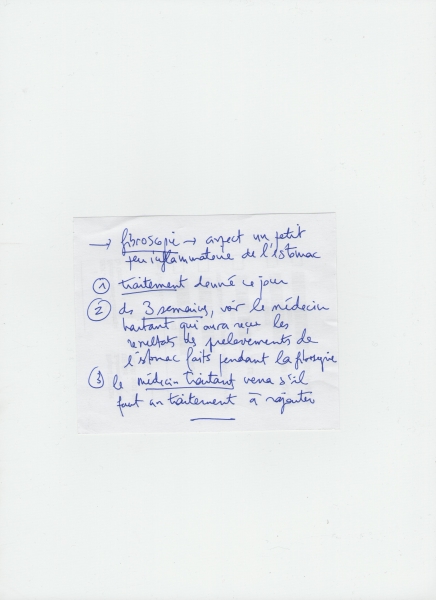 → fibroscopie → aspect un petit
peu inflammatoire de l'estomac
① traitement donné ce jour
② ds 3 semaines, voir le médecin
traitant qui aura reçu les
résultats des prélèvements de
l'estomac faits pendant la fibroscopie
③ le médecin traitant verra s'il
faut un traitement à rajouter